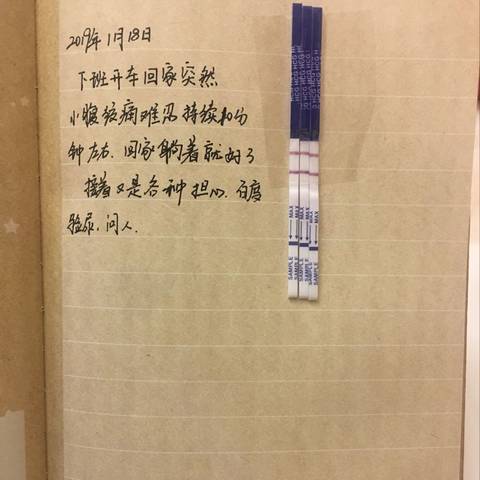 2019年1月18日
下班开车回家突然
小腹绞痛难忍持续10分
钟左右.回家躺着就好了
接着又是各种担心.百度
验尿.问人.
HCG HCG HCG
MAX
MAX
MAX
SAMPLE
SAMPLE
SAMPLE